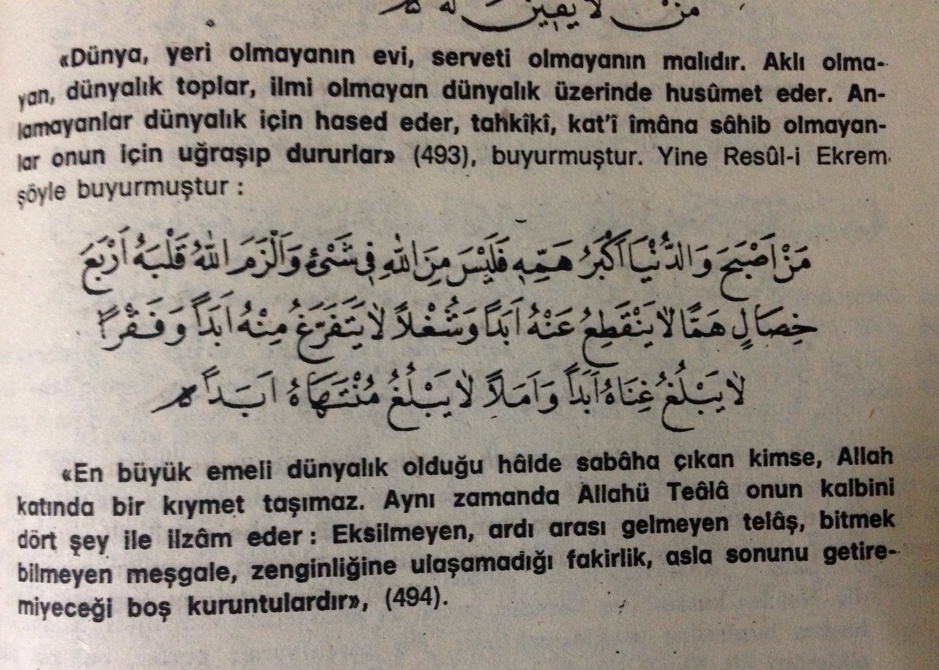 من لا يقين له
«Dünya, yeri olmayanın evi, serveti olmayanın malıdır. Aklı olma-
yan, dünyalık toplar, ilmi olmayan dünyalık üzerinde husûmet eder. An-
lamayanlar dünyalık için hased eder, tahkîkî, kat'î îmâna sâhib olmayan-
lar onun için uğraşıp dururlar» (493), buyurmuştur. Yine Resûl-i Ekrem
şöyle buyurmuştur :
مَنْ اَصْبَحَ وَالدُّنْيَا اَكْبَرُ هَمِّهِ فَلَيْسَ مِنَ اللّٰهِ فِي شَيْءٍ وَاَلْزَمَ اللّٰهُ قَلْبَهُ اَرْبَعَ
خِصَالٍ هَمًّا لَا يَنْقَطِعُ عَنْهُ اَبَدًا وَشُغْلًا لَا يَتَفَرَّغُ مِنْهُ اَبَدًا وَفَقْرًا
لَا يَبْلُغُ غِنَاهُ اَبَدًا وَاَمَلًا لَا يَبْلُغُ مُنْتَهَاهُ اَبَدًا
«En büyük emeli dünyalık olduğu hâlde sabâha çıkan kimse, Allah
katında bir kıymet taşımaz. Aynı zamanda Allahü Teâlâ onun kalbini
dört şey ile ilzâm eder : Eksilmeyen, ardı arası gelmeyen telâş, bitmek
bilmeyen meşgale, zenginliğine ulaşamadığı fakirlik, asla sonunu getire-
miyeceği boş kuruntulardır», (494).